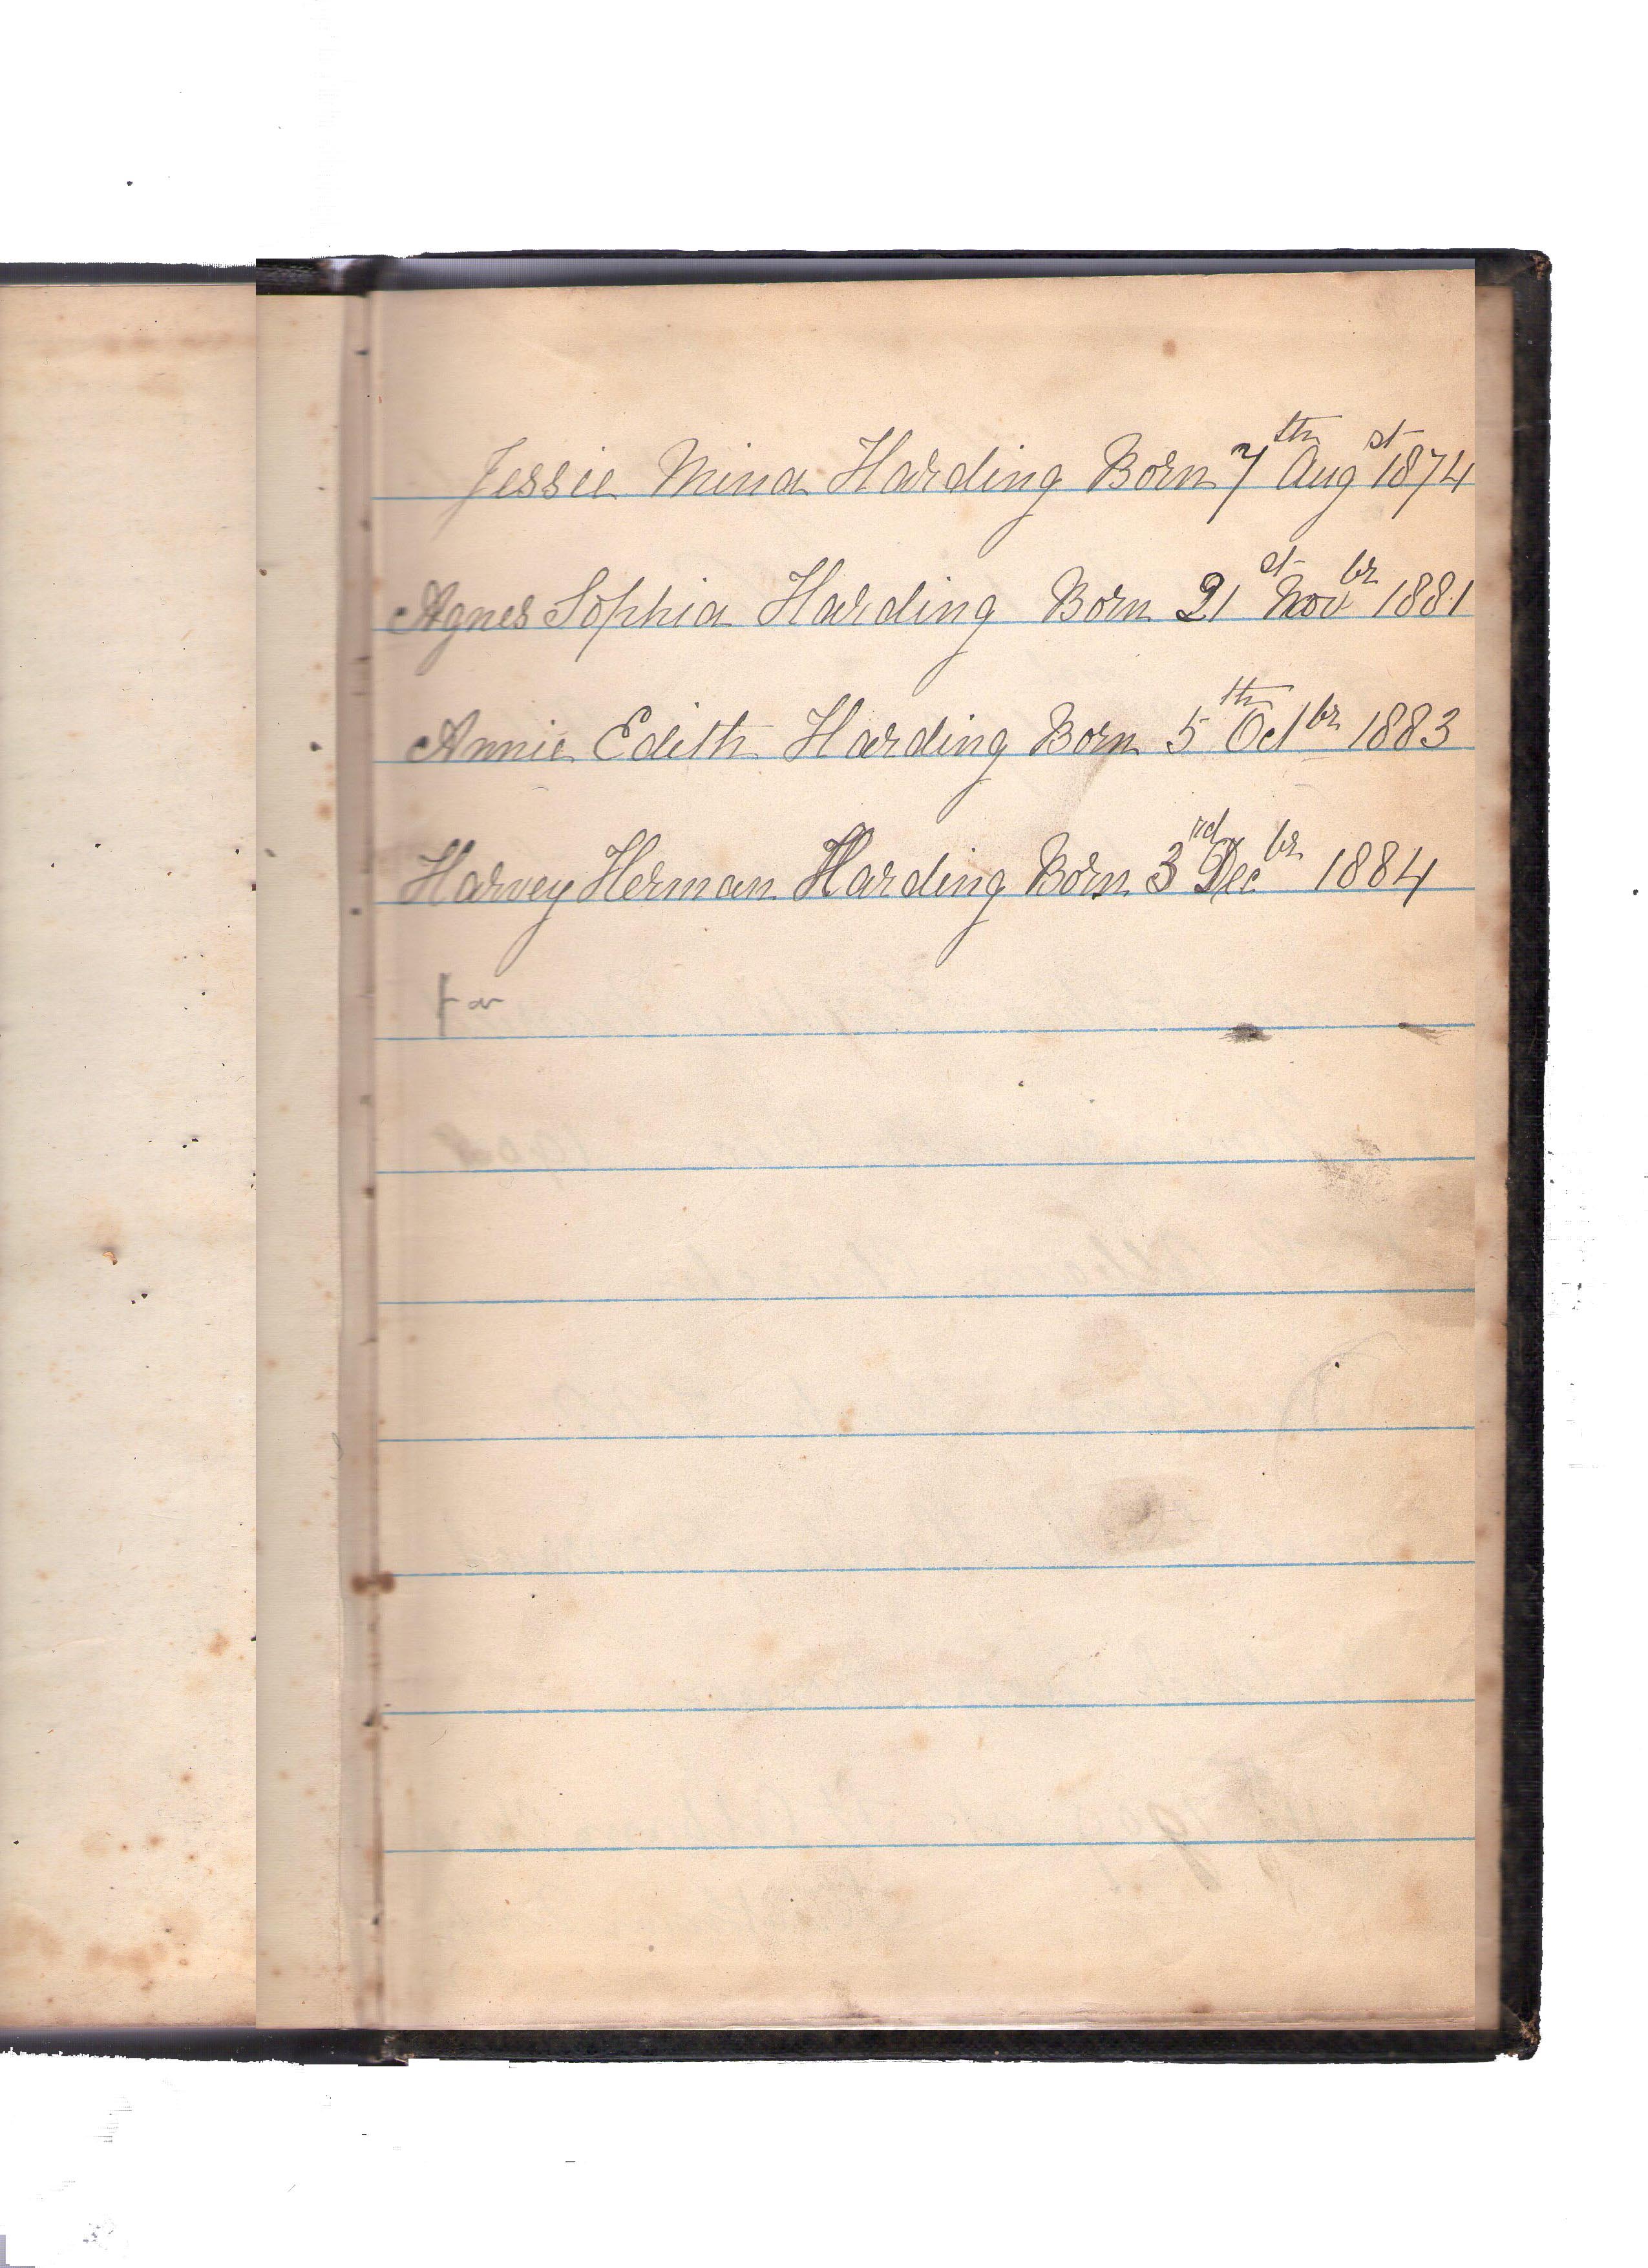 Jessie Mina Harding Born 7th Augst 1874
Agnes Sophia Harding Born 21st Novbr 1881
Annie Edith Harding Born 5th Octbr 1883
Harvey Herman Harding Born 3rd Decbr 1884